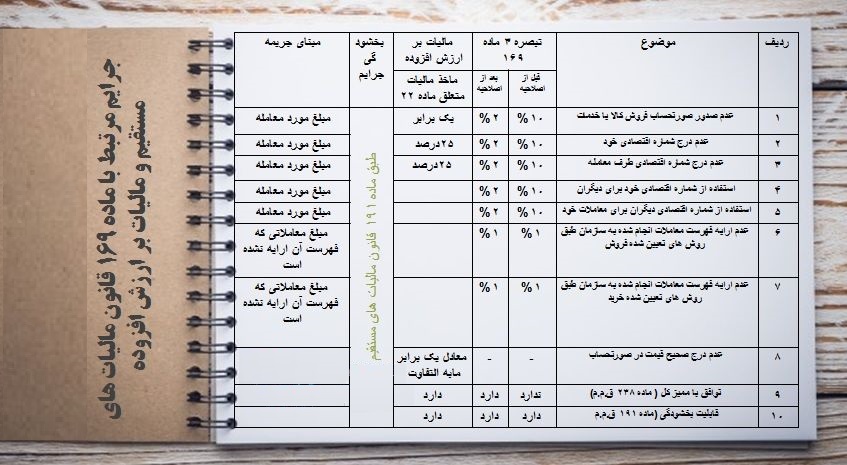 جرایم مرتبط با ماده ۱۶۹ قانون مالیات های
مستقیم و مالیات بر ارزش افزوده
ردیف
موضوع
تبصره ۳ ماده
۱۶۹
مالیات بر
ارزش افزوده
بخشود
گی
جرایم
مبنای جریمه
قبل از
اصلاحیه
بعد از
اصلاحیه
ماخذ مالیات
متعلق ماده ۲۲
طبق ماده ۱۹۱ قانون مالیات های مستقیم
۱ عدم صدور صورتحساب فروش کالا یا خدمات ۱۰% ۲% یک برابر مبلغ مورد معامله
۲ عدم درج شماره اقتصادی خود ۱۰% ۲% ۲۵درصد مبلغ مورد معامله
۳ عدم درج شماره اقتصادی طرف معامله ۱۰% ۲% ۲۵درصد مبلغ مورد معامله
۴ استفاده از شماره اقتصادی خود برای دیگران ۱۰% ۲% مبلغ مورد معامله
۵ استفاده از شماره اقتصادی دیگران برای معاملات خود ۱۰% ۲% مبلغ مورد معامله
۶ عدم ارایه فهرست معاملات انجام شده به سازمان طبق
روش های تعیین شده فروش
۱% ۱%
مبلغ معاملاتی که
فهرست آن ارایه نشده
است
۷ عدم ارایه فهرست معاملات انجام شده به سازمان طبق
روش های تعیین شده خرید
۱% ۱%
مبلغ معاملاتی که
فهرست آن ارایه نشده
است
۸ عدم درج صحیح قیمت در صورتحساب - - معادل یک برابر
مابه التفاوت
۹ توافق با ممیز کل ( ماده ۲۳۸ ق.م.م) ندارد دارد دارد
۱۰ قابلیت بخشودگی (ماده ۱۹۱ ق.م.م دارد دارد دارد